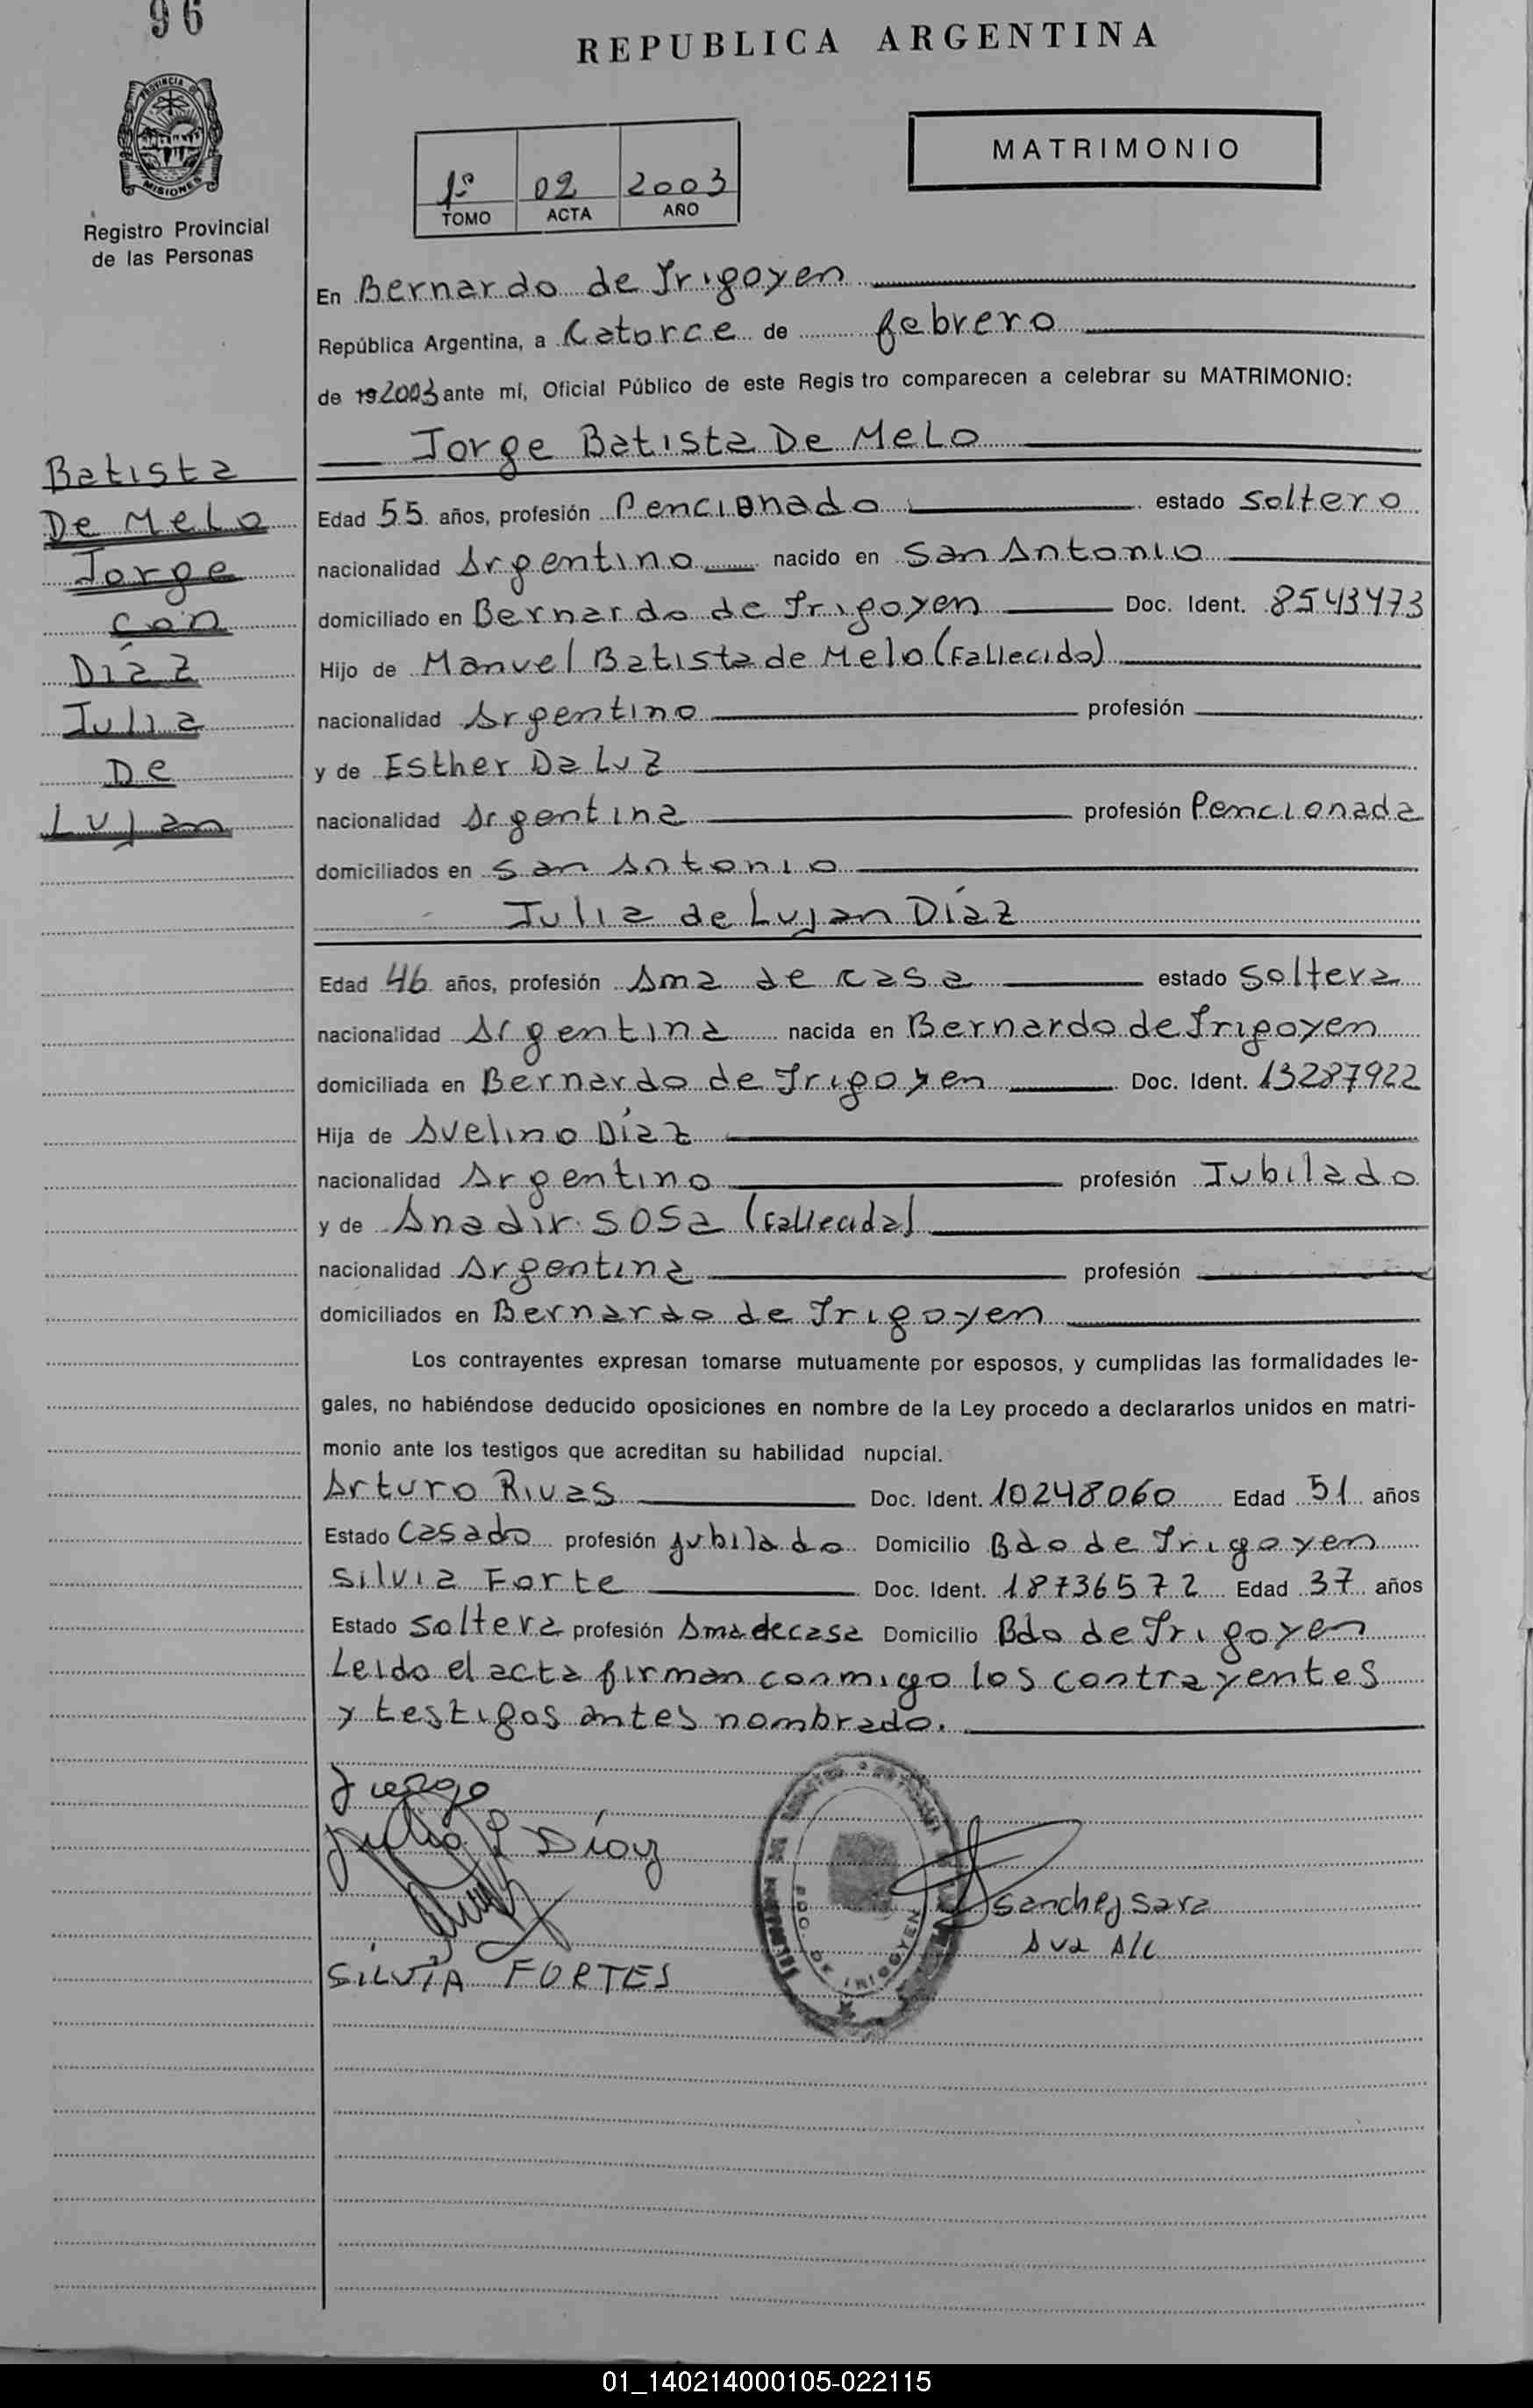 96
REPUBLICA ARGENTINA
PROVINCIA DE
MISIONES
Registro Provincial
de las Personas
1º 02 2003
TOMO ACTA AÑO
MATRIMONIO
En Bernardo de Irigoyen
República Argentina, a Catorce de febrero
de 19 2003 ante mí, Oficial Público de este Regis tro comparecen a celebrar su MATRIMONIO:
Jorge Batista De Melo
Batista
De Melo
Jorge
con
Díaz
Julia
De
Lujan
Edad 55 años, profesión Pencionado estado Soltero
nacionalidad Argentino nacido en San Antonio
domiciliado en Bernardo de Irigoyen Doc. Ident. 8543473
Hijo de Manuel Batista de Melo (Fallecido)
nacionalidad Argentino profesión
y de Esther Da Luz
nacionalidad Argentina profesión Pencionada
domiciliados en San Antonio
Julia de Lujan Díaz
Edad 46 años, profesión Ama de casa estado Soltera
nacionalidad Argentina nacida en Bernardo de Irigoyen
domiciliada en Bernardo de Irigoyen Doc. Ident. 13287922
Hija de Avelino Díaz
nacionalidad Argentino profesión Jubilado
y de Anadir Sosa (Fallecida)
nacionalidad Argentina profesión
domiciliados en Bernardo de Irigoyen
Los contrayentes expresan tomarse mutuamente por esposos, y cumplidas las formalidades le-
gales, no habiéndose deducido oposiciones en nombre de la Ley procedo a declararlos unidos en matri-
monio ante los testigos que acreditan su habilidad nupcial.
Arturo Rivas Doc. Ident. 10248060 Edad 51 años
Estado Casado profesión jubilado Domicilio Bdo de Irigoyen
Silvia Forte Doc. Ident. 18736572 Edad 37 años
Estado Soltera profesión Ama de casa Domicilio Bdo de Irigoyen
Leido el acta firman conmigo los contrayentes
y testigos antes nombrado.
Julia L Díaz
Sanchez Sara
SILVIA FORTES
BDO. DE IRIGOYEN
01_140214000105-022115